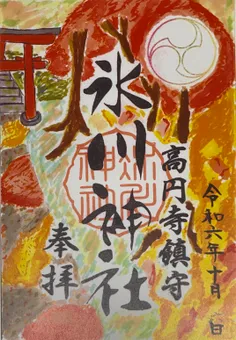 令和六年十月
高円寺鎮守
氷川神社
奉拝